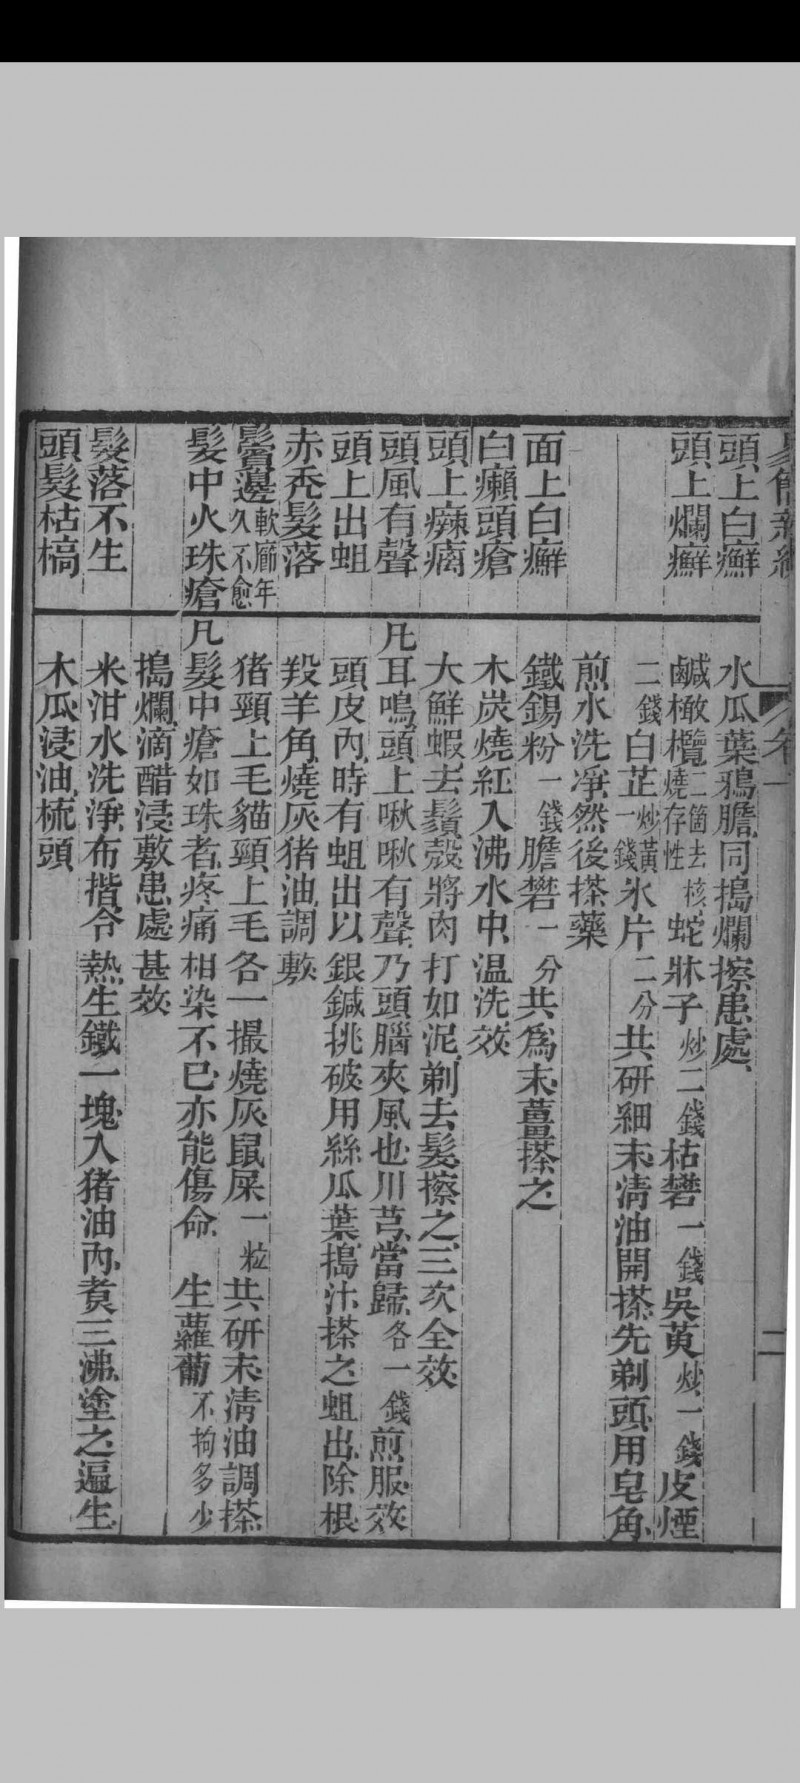 易簡新編
卷一
二
頭上白癬
水瓜葉鴉膽同搗爛擦患處
頭上爛癬
鹹橄欖二箇去核燒存性蛇牀子炒二錢枯礬一錢吳萸炒一錢皮煙
二錢白芷炒黃一錢氷片二分共研細末清油開搽先剃頭用皂角
煎水洗淨然後搽藥
面上白癬
鐵錫粉一錢膽礬一分共為末薑搽之
白癩頭瘡
木炭燒紅入沸水中温洗效
頭上痲痛
大鮮蝦去鬚殼將肉打如泥剃去髮擦之三次全效
頭風有聲
凡耳鳴頭上啾啾有聲乃頭腦夾風也川芎當歸各一錢煎服效
頭上出蛆
頭皮內時有蛆出以銀鍼挑破用絲瓜葉搗汁搽之蛆出除根
赤禿髮落
羖羊角燒灰猪油調敷
鬢邊軟癤年久不愈
猪頸上毛貓頸上毛各一撮燒灰鼠屎一粒共研末清油調搽
髮中火珠瘡
凡髮中瘡如珠者疼痛相染不已亦能傷命 生蘿蔔不拘多少
搗爛滴醋浸敷患處甚效
髮落不生
米泔水洗淨布揩令熱生鐵一塊入猪油內煮三沸塗之遍生
頭髮枯槁
木瓜浸油梳頭